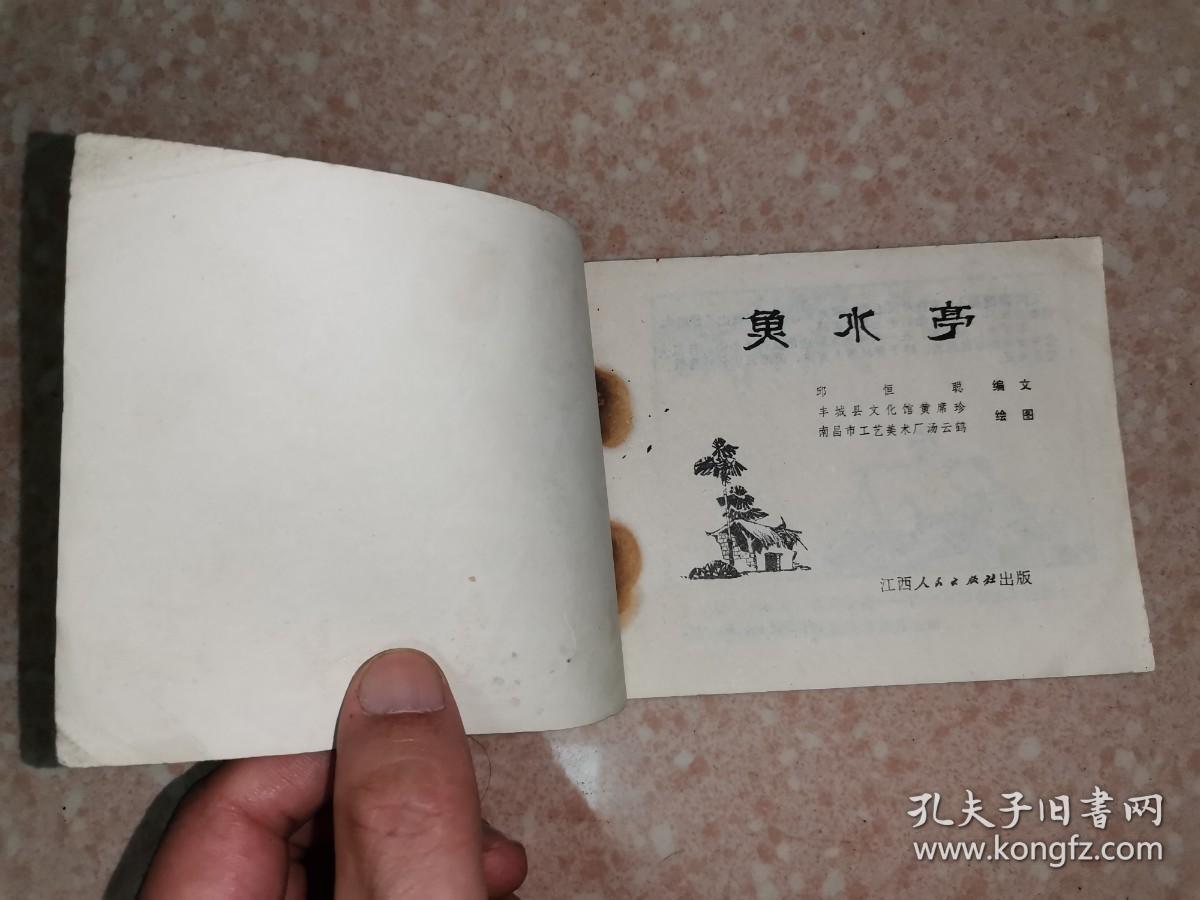 鱼水亭
邱恒聪 编文
丰城县文化馆黄席珍
南昌市工艺美术厂汤云鹤 绘图
江西人民出版社出版
孔夫子旧书网
www.kongfz.com